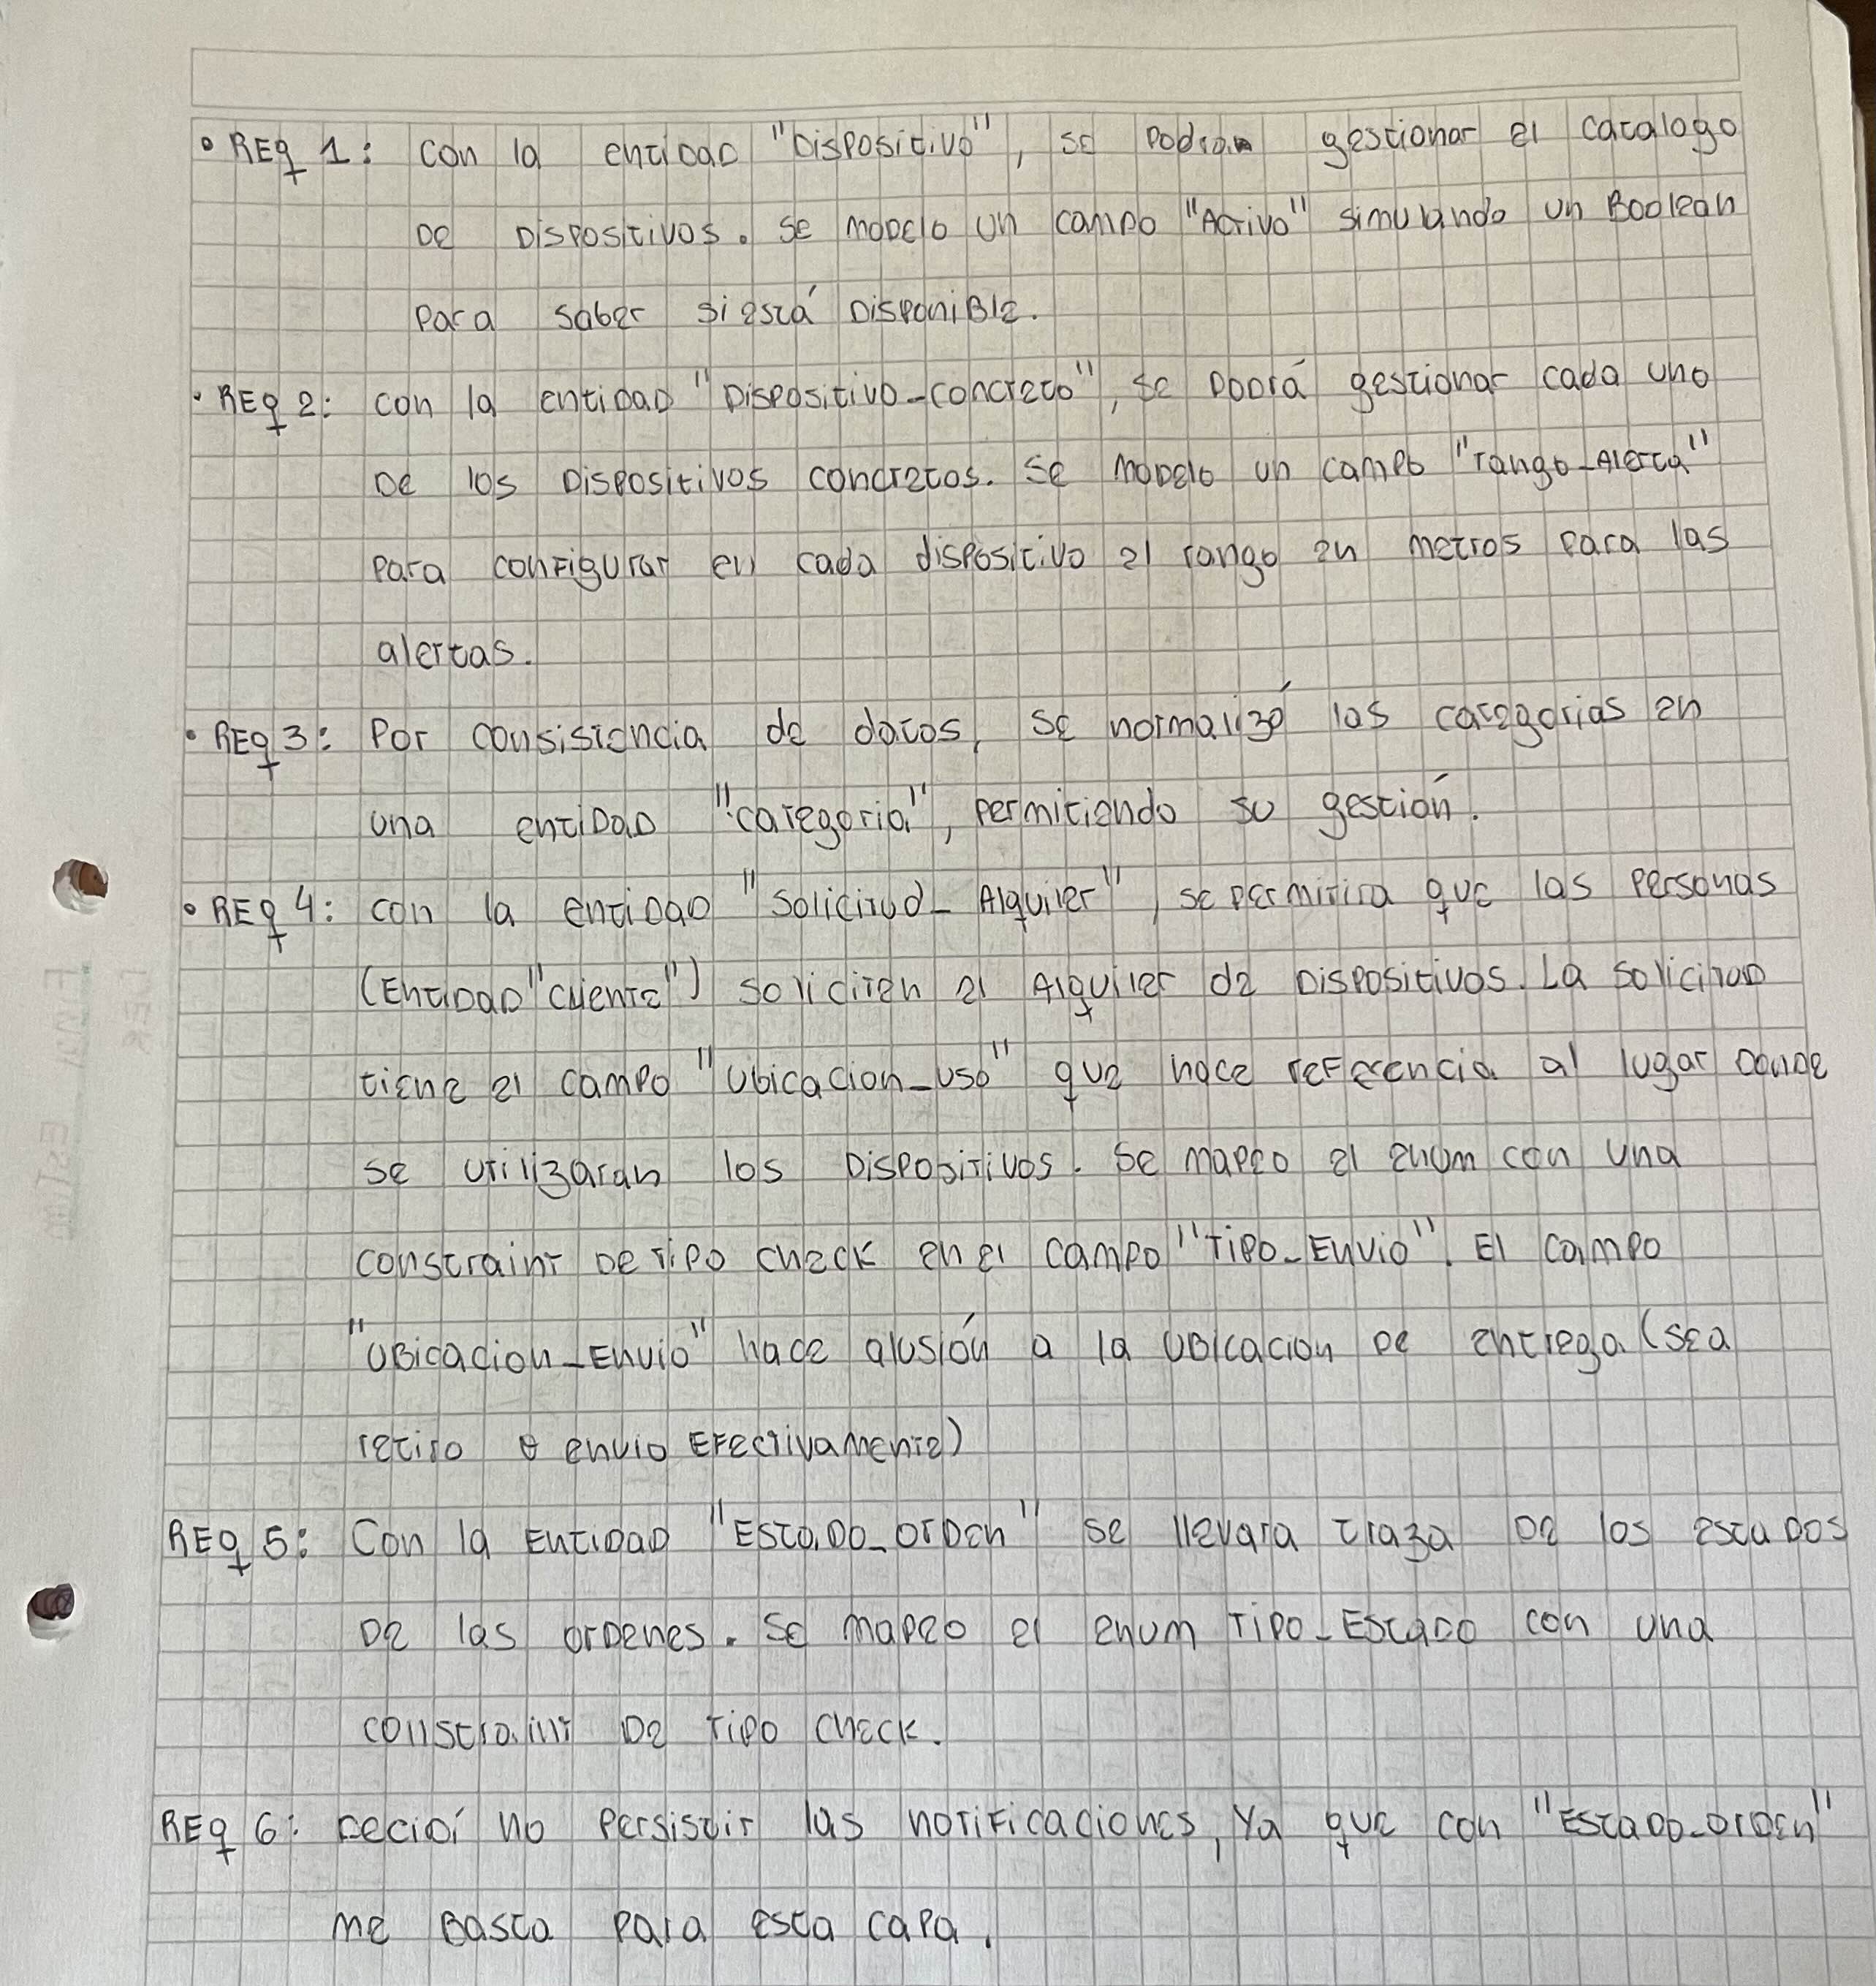 • REq 1: con la entidad "Dispositivo", se podran gestionar el catalogo
de Dispositivos. Se modelo un campo "Activo" simulando un Boolean
para saber si está Disponible.
• REq 2: con la entidad "Dispositivo-concreto", se podrá gestionar cada uno
de los Dispositivos concretos. Se modelo un campo "rango-Alerta"
para configurar en cada dispositivo el rango en metros para las
alertas.
• REq 3: Por consistencia de datos, se normalizó las categorias en
una entidad "categoria", permitiendo su gestión.
• REq 4: con la entidad "Solicitud-Alquiler", se permitira que las Personas
(Entidad "cliente") soliciten el Alquiler de Dispositivos. La solicitud
tiene el campo "Ubicacion-uso" que hace referencia al lugar donde
se utilizaran los Dispositivos. Se mapeo el enum con una
constraint de tipo check en el campo "Tipo-Envio". El campo
"Ubicacion-Envio" hace alusión a la ubicacion de entrega (sea
retiro o envio Efectivamente)
REq 5: Con la Entidad "Estado-Orden" se llevara traza de los estados
de las ordenes. Se mapeo el enum Tipo-Estado con una
constraint de tipo check.
REq 6: Decidí no persistir las notificaciones, Ya que con "Estado-orden"
me Basta para esta capa.